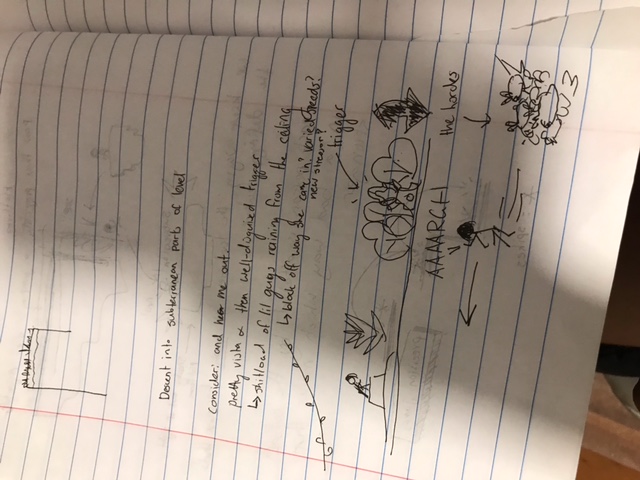 Descent into subterranean parts of level
Consider: and hear me out.
pretty vista & then well-disguised trigger
↳ shitload of lil guys raining from the ceiling
↳ block off way she came in? varied speeds?
new stressor?
trigger
AAAARGH
the hordes